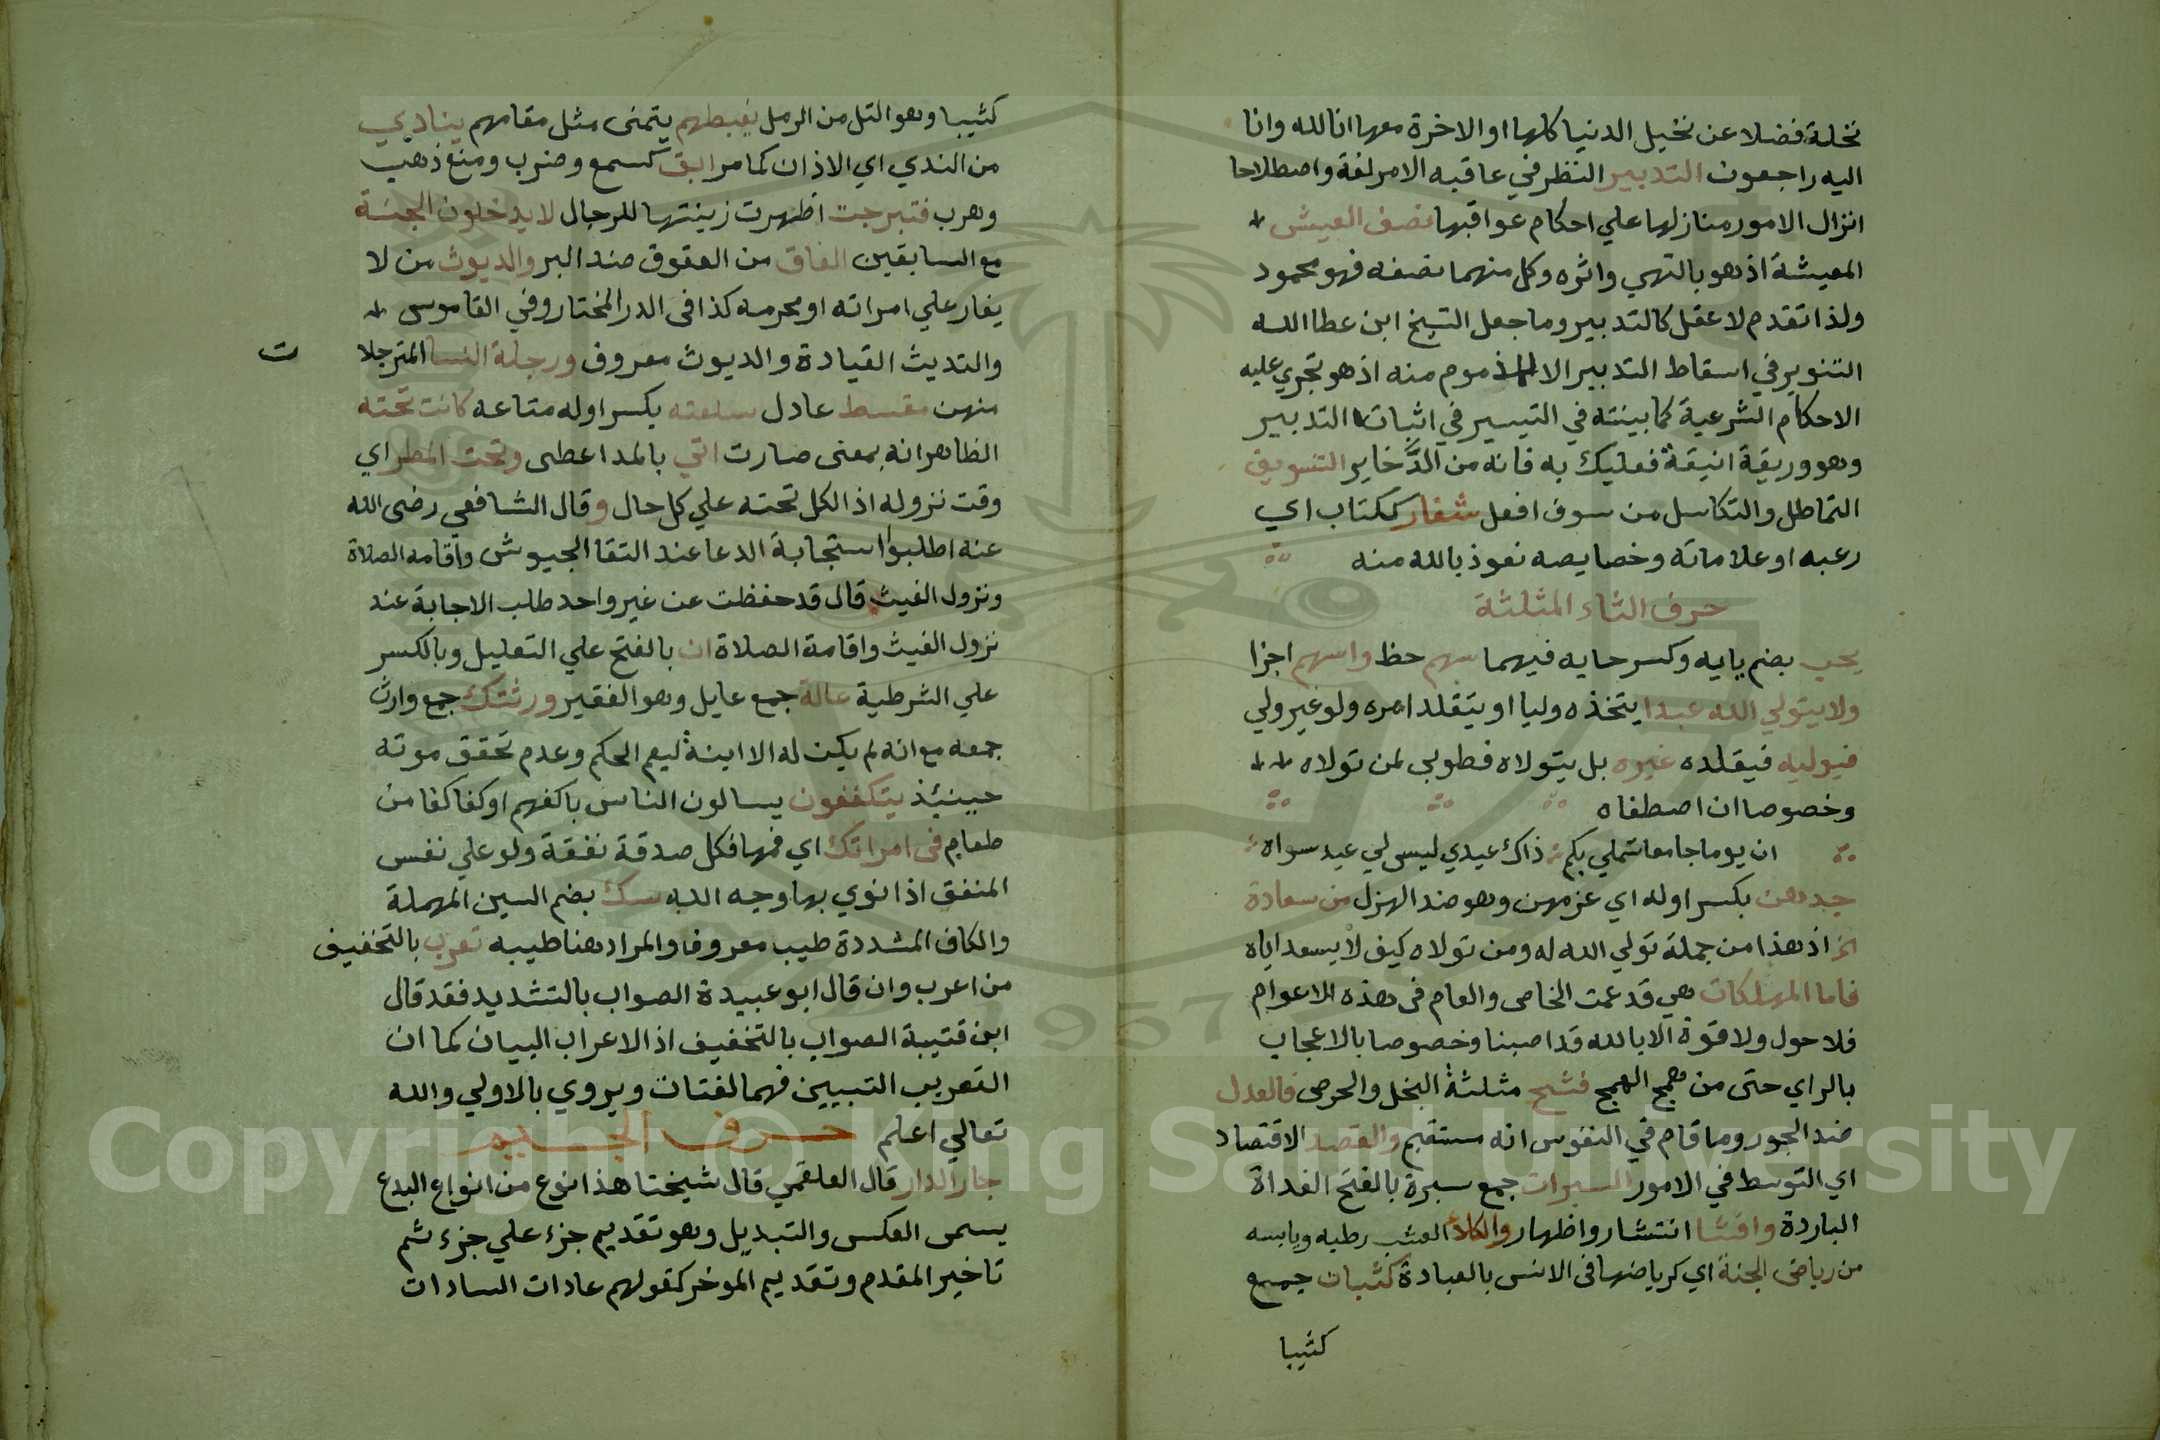 نخلة فضلا عن نخيل الدنيا كلها او الاخرة معها انا لله وانا
اليه راجعون التدبير النظر في عاقبه الامر لغة واصطلاحا
انزال الامور منازلها علي احكام عواقبها نصف العيش
المعيشة اذ هو بالتهي واثره وكل منهما نصفه فهو محمود
ولذا تقدم لا عقل كالتدبير وما جعل الشيخ ابن عطا الله
التنوير في اسقاط التدبير الا المذموم منه اذ هو تجري عليه
الاحكام الشرعية كما بينته في التيسير في اثبات التدبير
وهو وريقة انيقة فعليك به فانه من الدخاير التسويف
التماطل والتكاسل من سوف افعل شعار ككتاب اي
رعبه او علاماته وخصايصه نعوذ بالله منه
حرف الثاء المثلثة
يحب بضم يايه وكسر حايه فيهما سهم حظ واسهم اجزا
ولا يتولي الله عبدا يتخذه وليا او يتقلد امره ولو غير ولي
فيوليه فيقلده غيره بل يتولاه فطوبي لمن تولاه
وخصوصا ان اصطفاه
ان يوما جامعا شملي بكم ذاك عيدي ليس لي عيد سواه
جدهن بكسر اوله اي عزمهن وهو ضد الهزل من سعادة
الخ اذ هذا من جملة تولي الله له ومن تولاه كيف لا يسعد اياه
فاما المهلكات هي قد عمت الخاص والعام في هذه الاعوام
فلا حول ولا قوة الا بالله قد اصبنا وخصوصا بالاعجاب
بالراي حتى من همج الهمج فشح مثلثة البخل والحرص فالعدل
ضد الجور وما قام في النفوس انه مستقيم والقصد الاقتصاد
اي التوسط في الامور السبرات جمع سبرة بالفتح الغداة
الباردة وافشا انتشار واظهار والكلا العشب رطبه ويابسه
من رياض الجنة اي كرياضها في الانس بالعبادة كثبان جمع
كثيبا
كثيبا وهو التل من الرمل يغبطهم يتمنى مثل مقامهم ينادي
من الندي اي الاذان كما مر ابق كسمع وضرب ومنع ذهب
وهرب فتبرجت اظهرت زينتها للرجال لا يدخلون الجنة
مع السابقين العاق من العقوق ضد البر والديوث من لا
يغار علي امراته او محرمه كذا في الدر المختار وفي القاموس
والتديث القيادة والديوث معروف ورجلة النسا المترجلا
ت
منهن مقسط عادل سلعته بكسر اوله متاعه كانت تحته
الظاهر انه بمعنى صارت اتي بالمد اعطى وتحت المطر اي
وقت نزوله اذ الكل تحته علي كل حال وقال الشافعي رضى الله
عنه اطلبوا استجابة الدعا عند التقا الجيوش واقامه الصلاة
ونزول الغيث قال قد حفظت عن غير واحد طلب الاجابة عند
نزول الغيث واقامة الصلاة ان بالفتح علي التعليل وبالكسر
علي الشرطية عالة جمع عايل وهو الفقير ورثتك جمع وارث
جمعه مع انه لم يكن له الا ابنة ليعم الحكم وعدم تحقق موته
حينئذ يتكففون يسالون الناس باكفهم او كفا كفا من
طعام في امراتك اي فمها فكل صدقة نفقة ولو علي نفس
المنفق اذا نوي بها وجه الله سك بضم السين المهملة
والكاف المشددة طيب معروف والمراد هنا طيبه تعرب بالتخفيف
من اعرب وان قال ابو عبيدة الصواب بالتشديد فقد قال
ابن قتيبة الصواب بالتخفيف اذ الاعراب البيان كما ان
التعريب التبيين فهما لغتان ويروي بالاولي والله
تعالي اعلم حرف الجيم
جار الدار قال العلقمي قال شيختا هذا نوع من انواع البدع
يسمى العكس والتبديل وهو تقديم جزء علي جزء ثم
تاخير المقدم وتقديم الموخر كقولهم عادات السادات
Copyright © King Saud University
1957